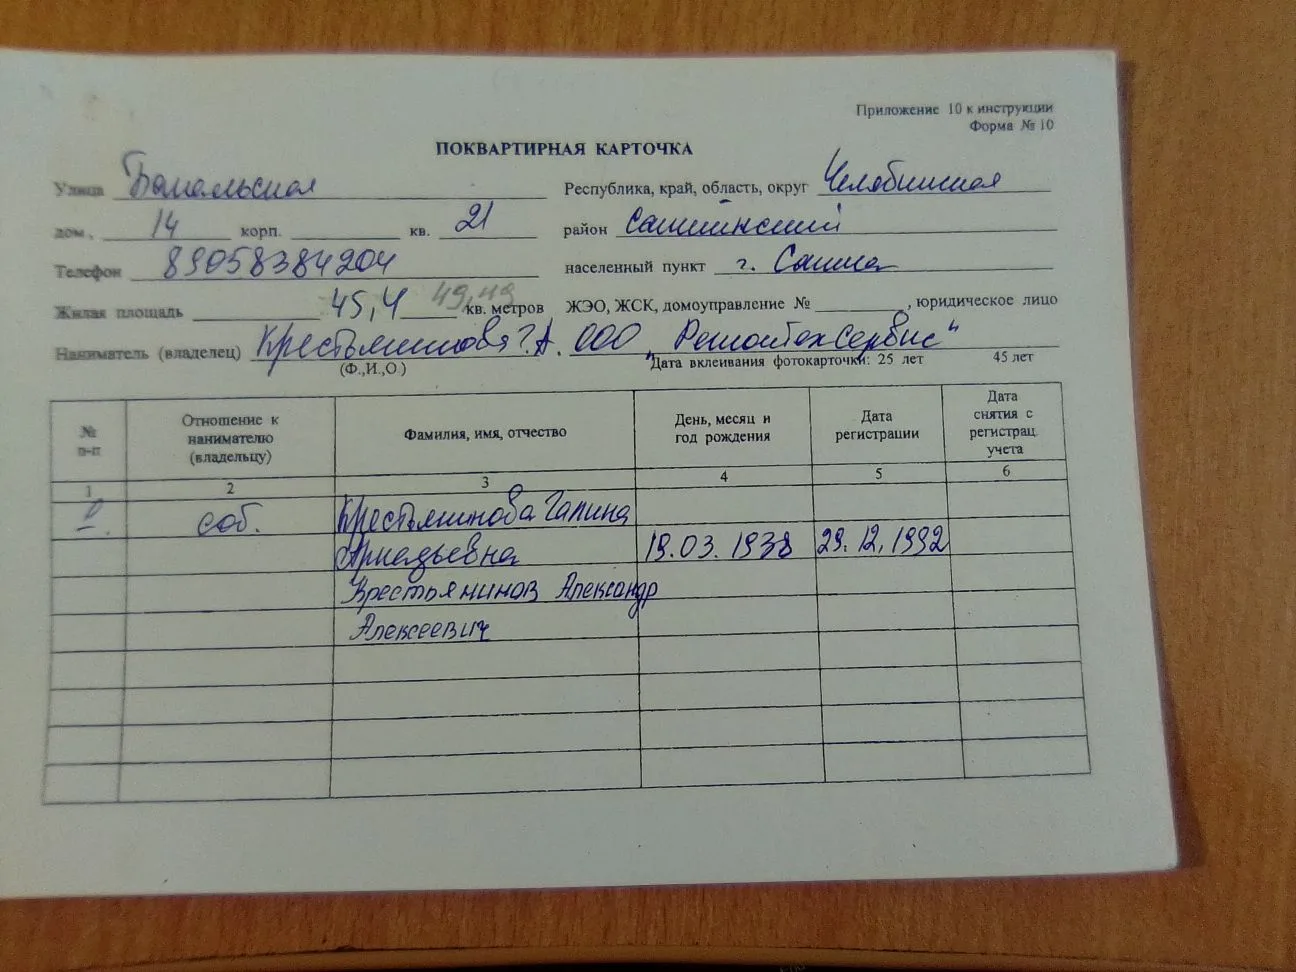 Приложение 10 к инструкции
Форма № 10
ПОКВАРТИРНАЯ КАРТОЧКА
Улица Бакальская Республика, край, область, округ Челябинская
дом, 14 корп. кв. 21 район Саткинский
Телефон 89058384204 населенный пункт г. Сатка
Жилая площадь 45,4 49,49 кв. метров ЖЭО, ЖСК, домоуправление № , юридическое лицо
Наниматель (владелец) Крестьянинова Г.А. ООО "РемонтехСервис"
(Ф.,И.,О.) Дата вклеивания фотокарточки: 25 лет 45 лет
№ п-п Отношение к нанимателю (владельцу) Фамилия, имя, отчество День, месяц и год рождения Дата регистрации Дата снятия с регистрац. учета
1 2 3 4 5 6
соб. Крестьянинова Галина
Аркадьевна 19.03.1938 29.12.1992
Крестьянинов Александр
Алексеевич